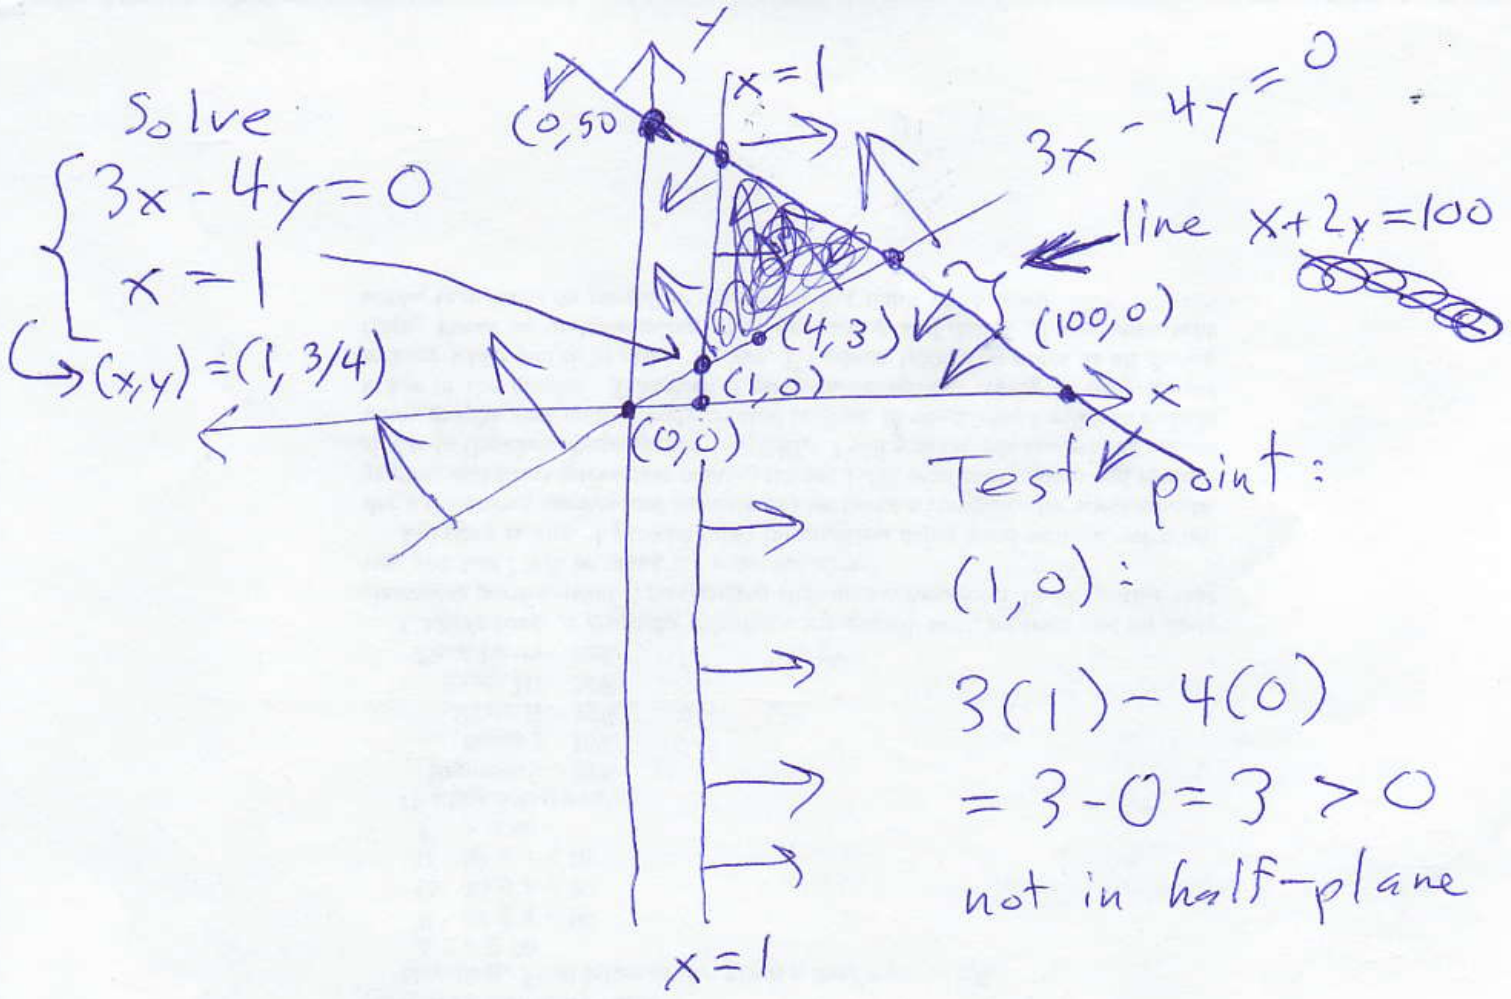 Solve
3x - 4y = 0
x = 1
(x,y) = (1, 3/4)
y
x = 1
(0,50
3x - 4y = 0
line x + 2y = 100
(100,0)
(4,3)
(1,0)
x
(0,0)
x = 1
Test point:
(1,0):
3(1) - 4(0)
= 3 - 0 = 3 > 0
not in half-plane